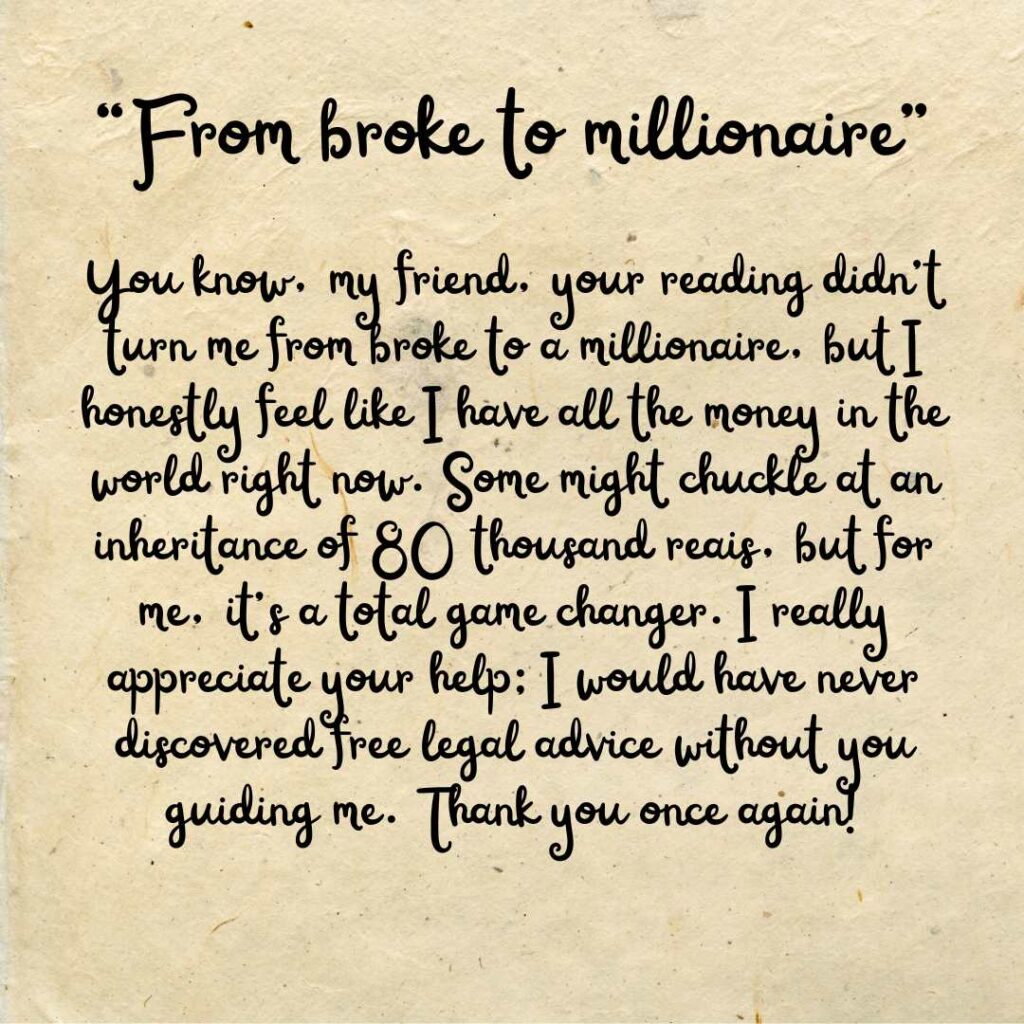 “From broke to millionaire”
You know, my friend, your reading didn't
turn me from broke to a millionaire, but I
honestly feel like I have all the money in the
world right now. Some might chuckle at an
inheritance of 80 thousand reais, but for
me, it's a total game changer. I really
appreciate your help; I would have never
discovered free legal advice without you
guiding me. Thank you once again!